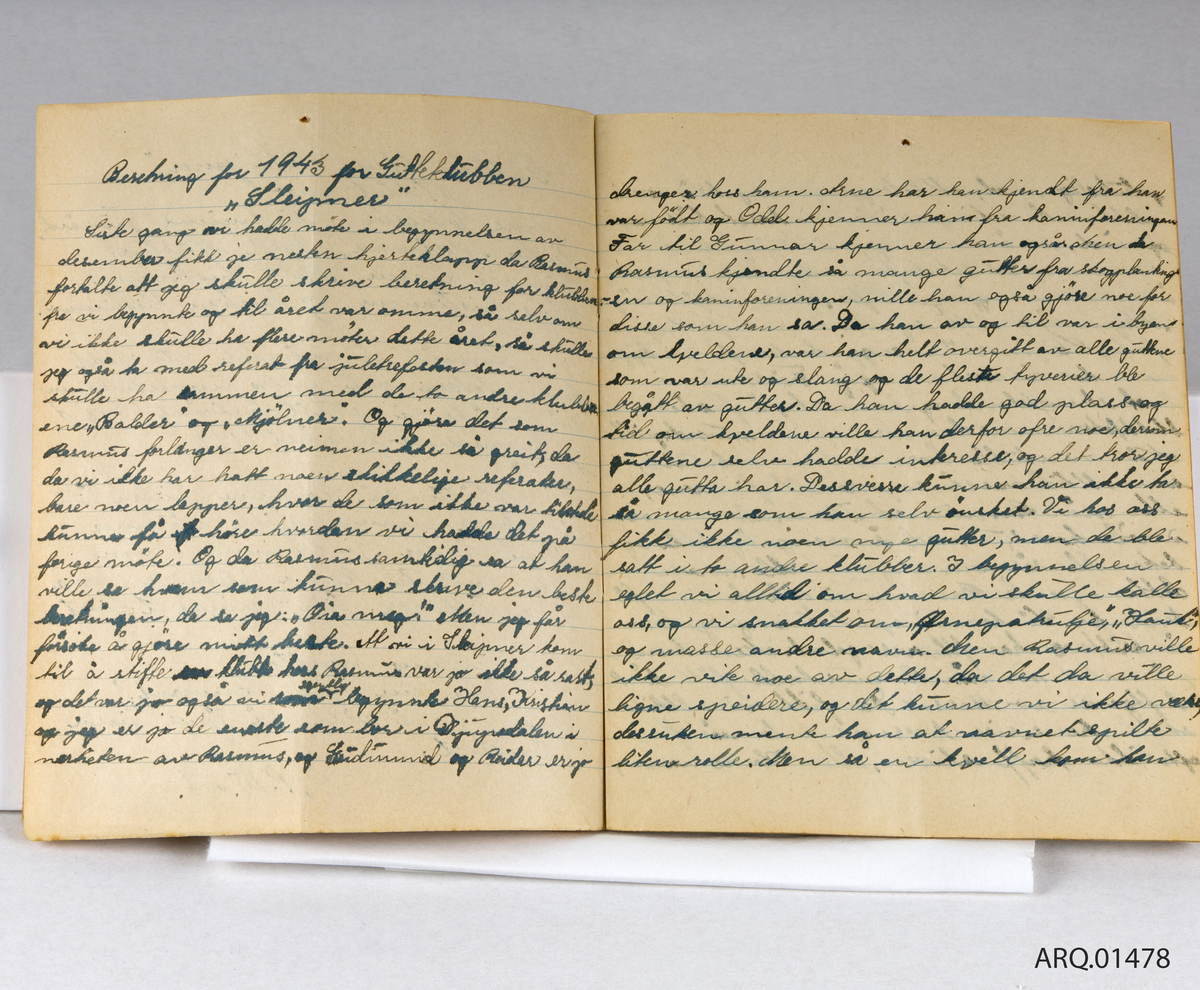 Beretning for 1943 for Gutteklubben
„Sleipner"
Siste gang vi hadde möte i begynnelsen av
desember fikk je nesten hjerteklapp da Rasmus
fortalte att jeg skulle skrive beretning for klubben
fra vi begynnte og til året var omme, så selv om
vi ikke skulle ha flere möter dette året, så skulle
jeg også ta med referat fra juletrefesten som vi
skulle ha sammen med de to andre klubb
ene „Balder" og „Mjölner". Og gjöre det som
Rasmus forlanger er neimen ikke så greit, da
da vi ikke har hatt noen skikkelige referater,
bare noen lapper, hvor de som ikke var tilstede
kunne få höre hvordan vi hadde det på
forige möte. Og da Rasmus samtidig sa at han
ville se hvem som kunne skrive den beste
beretningen, da sa jeg: „Öia meg!" Men jeg får
försöke å gjöre mitt beste. At vi i Sleipner kom
til å stiffe klubb hos Rasmus var jo ikke så rart,
og det var jo også vi begynnte Hans, Kristian
og jeg er jo de eneste som bor i Djupedalen i
nærheten av Rasmus, og Gudmund og Reidar er jo
drenger hoss ham. Arne har han kjendt fra han
var födt og Odd kjenner ham fra kaninforeningen
Far til Gunnar kjenner han også. Men da
Rasmus kjendte så mange gutter fra skogplanting-
en og kaninforeningen, ville han også gjöre noe for
disse som han sa. Da han av og til var i byen
om kveldene, var han helt overgitt av alle guttene
som var ute og slang og de fleste tyverier ble
begått av gutter. Da han hadde god plass og
tid om kveldene ville han derfor ofre noe, dersom
guttene selv hadde interesse, og det tror jeg
alle gutta har. Dessverre kunne han ikke ta
så mange som han selv önsket. Vi hos oss
fikk ikke noen nye gutter, men de ble
satt i to andre klubber. I begynnelsen
eglet vi alltid om hvad vi skulle kalle
oss, og vi snakket om, „Ørnepatrulje", „Hauk",
og masse andre navn. Men Rasmus ville
ikke vite noe av dette, da det da ville
ligne speidere, og det kunne vi ikke være,
dessuten mente han at navnet spilte
liten rolle. Men så en kvell kom han
ARQ.01478